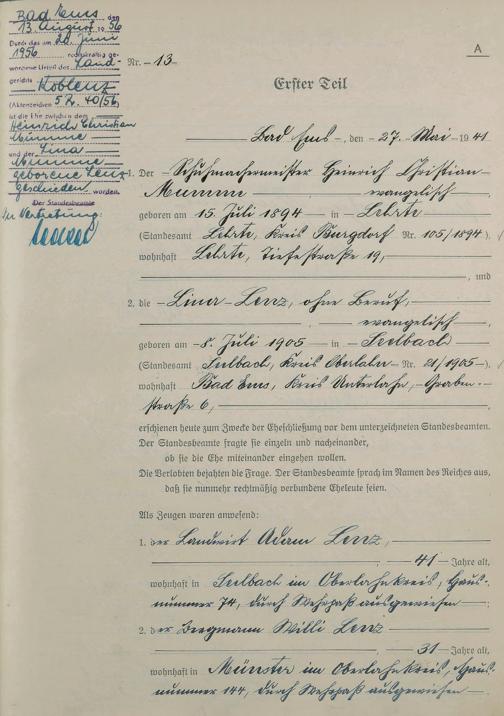 Bad Ems, den
13. August 1956
Durch das am 20. Juni
1956 rechtskräftig ge-
wordene Urteil des Land-
gerichts Koblenz
(Aktenzeichen 5 R. 40/56)
ist die Ehe zwischen dem
Heinrich Christian
Mumme
und der Lina
Mumme
geborene Lenz
geschieden worden.
Der Standesbeamte
In Vertretung:
A
Nr. 13
Erster Teil
Bad Ems, den 27. Mai 1941
1. Der Schuhmachermeister Heinrich Christian
Mumme, evangelisch
geboren am 15. Juli 1894 in Lehrte
(Standesamt Lehrte, Kreis Burgdorf Nr. 105/1894)
wohnhaft Lehrte, Tiefestraße 19,
, und
2. die Lina Lenz, ohne Beruf,
, evangelisch
geboren am 8. Juli 1905 in Seelbach
(Standesamt Seelbach, Kreis Oberlahn Nr. 21/1905)
wohnhaft Bad Ems, Kreis Unterlahn, Graben-
straße 6,
erschienen heute zum Zwecke der Eheschließung vor dem unterzeichneten Standesbeamten.
Der Standesbeamte fragte sie einzeln und nacheinander,
ob sie die Ehe miteinander eingehen wollen.
Die Verlobten bejahten die Frage. Der Standesbeamte sprach im Namen des Reiches aus,
daß sie nunmehr rechtmäßig verbundene Eheleute seien.
Als Zeugen waren anwesend:
1. der Landwirt Adam Lenz,
41 Jahre alt,
wohnhaft in Seelbach im Oberlahnkreis, Haus-
nummer 74, durch Wehrpaß ausgewiesen ;
2. der Bergmann Willi Lenz
31 Jahre alt,
wohnhaft in Münster im Oberlahnkreis, Haus-
nummer 144, durch Wehrpaß ausgewiesen .